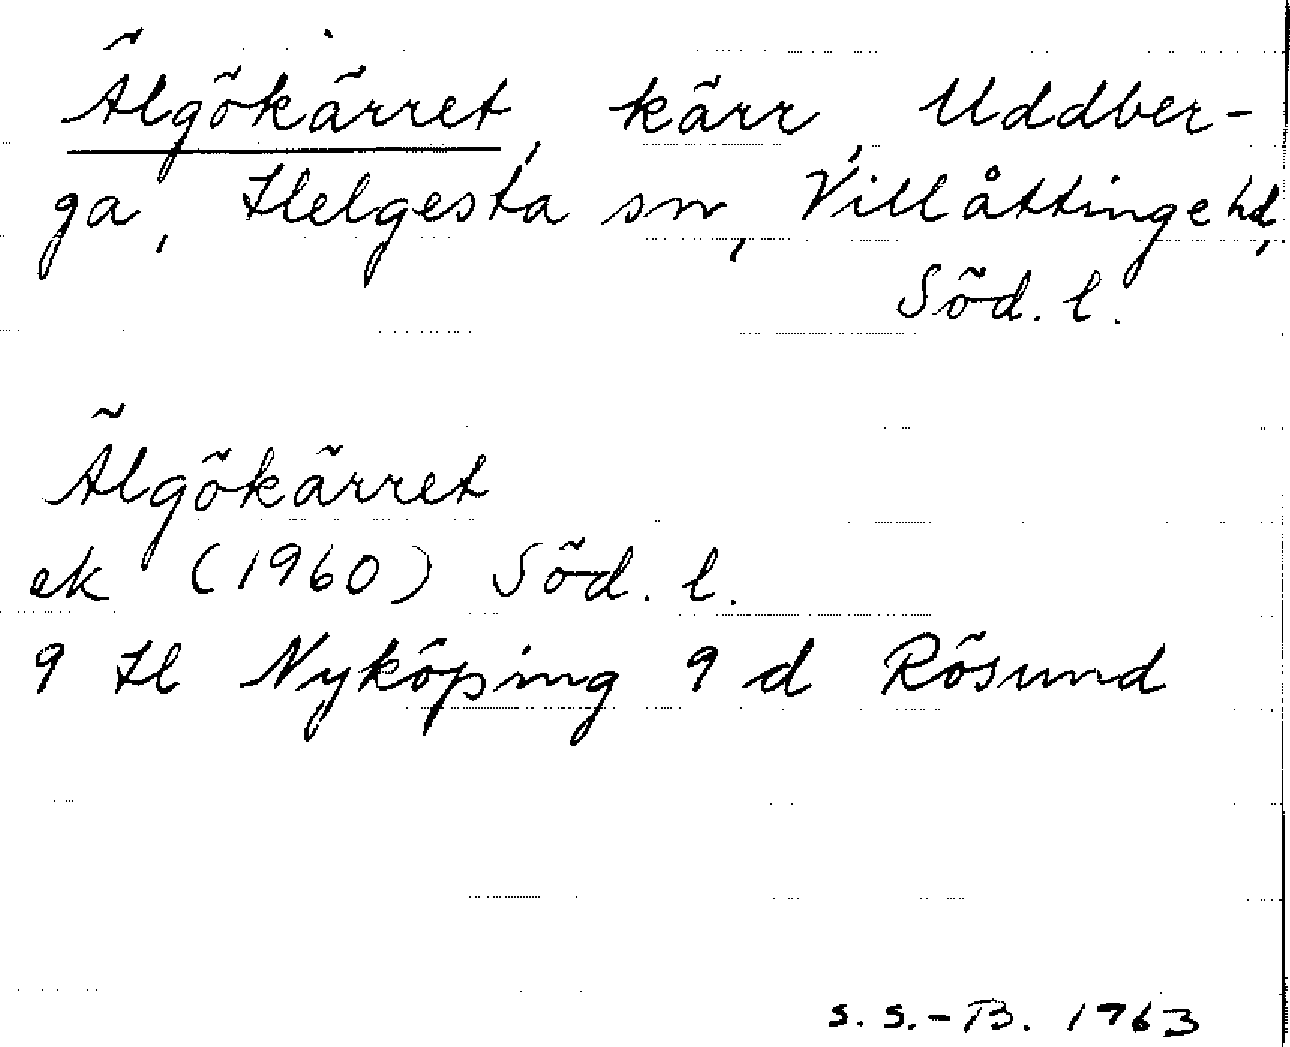 Älgökärret, kärr, Uddber-
ga, Helgesta sn, Villåttinge hd,
Söd. l.
Älgökärret
ek (1960) Söd. l.
9 H Nyköping 9 d Rösund
S. S.-B. 1963